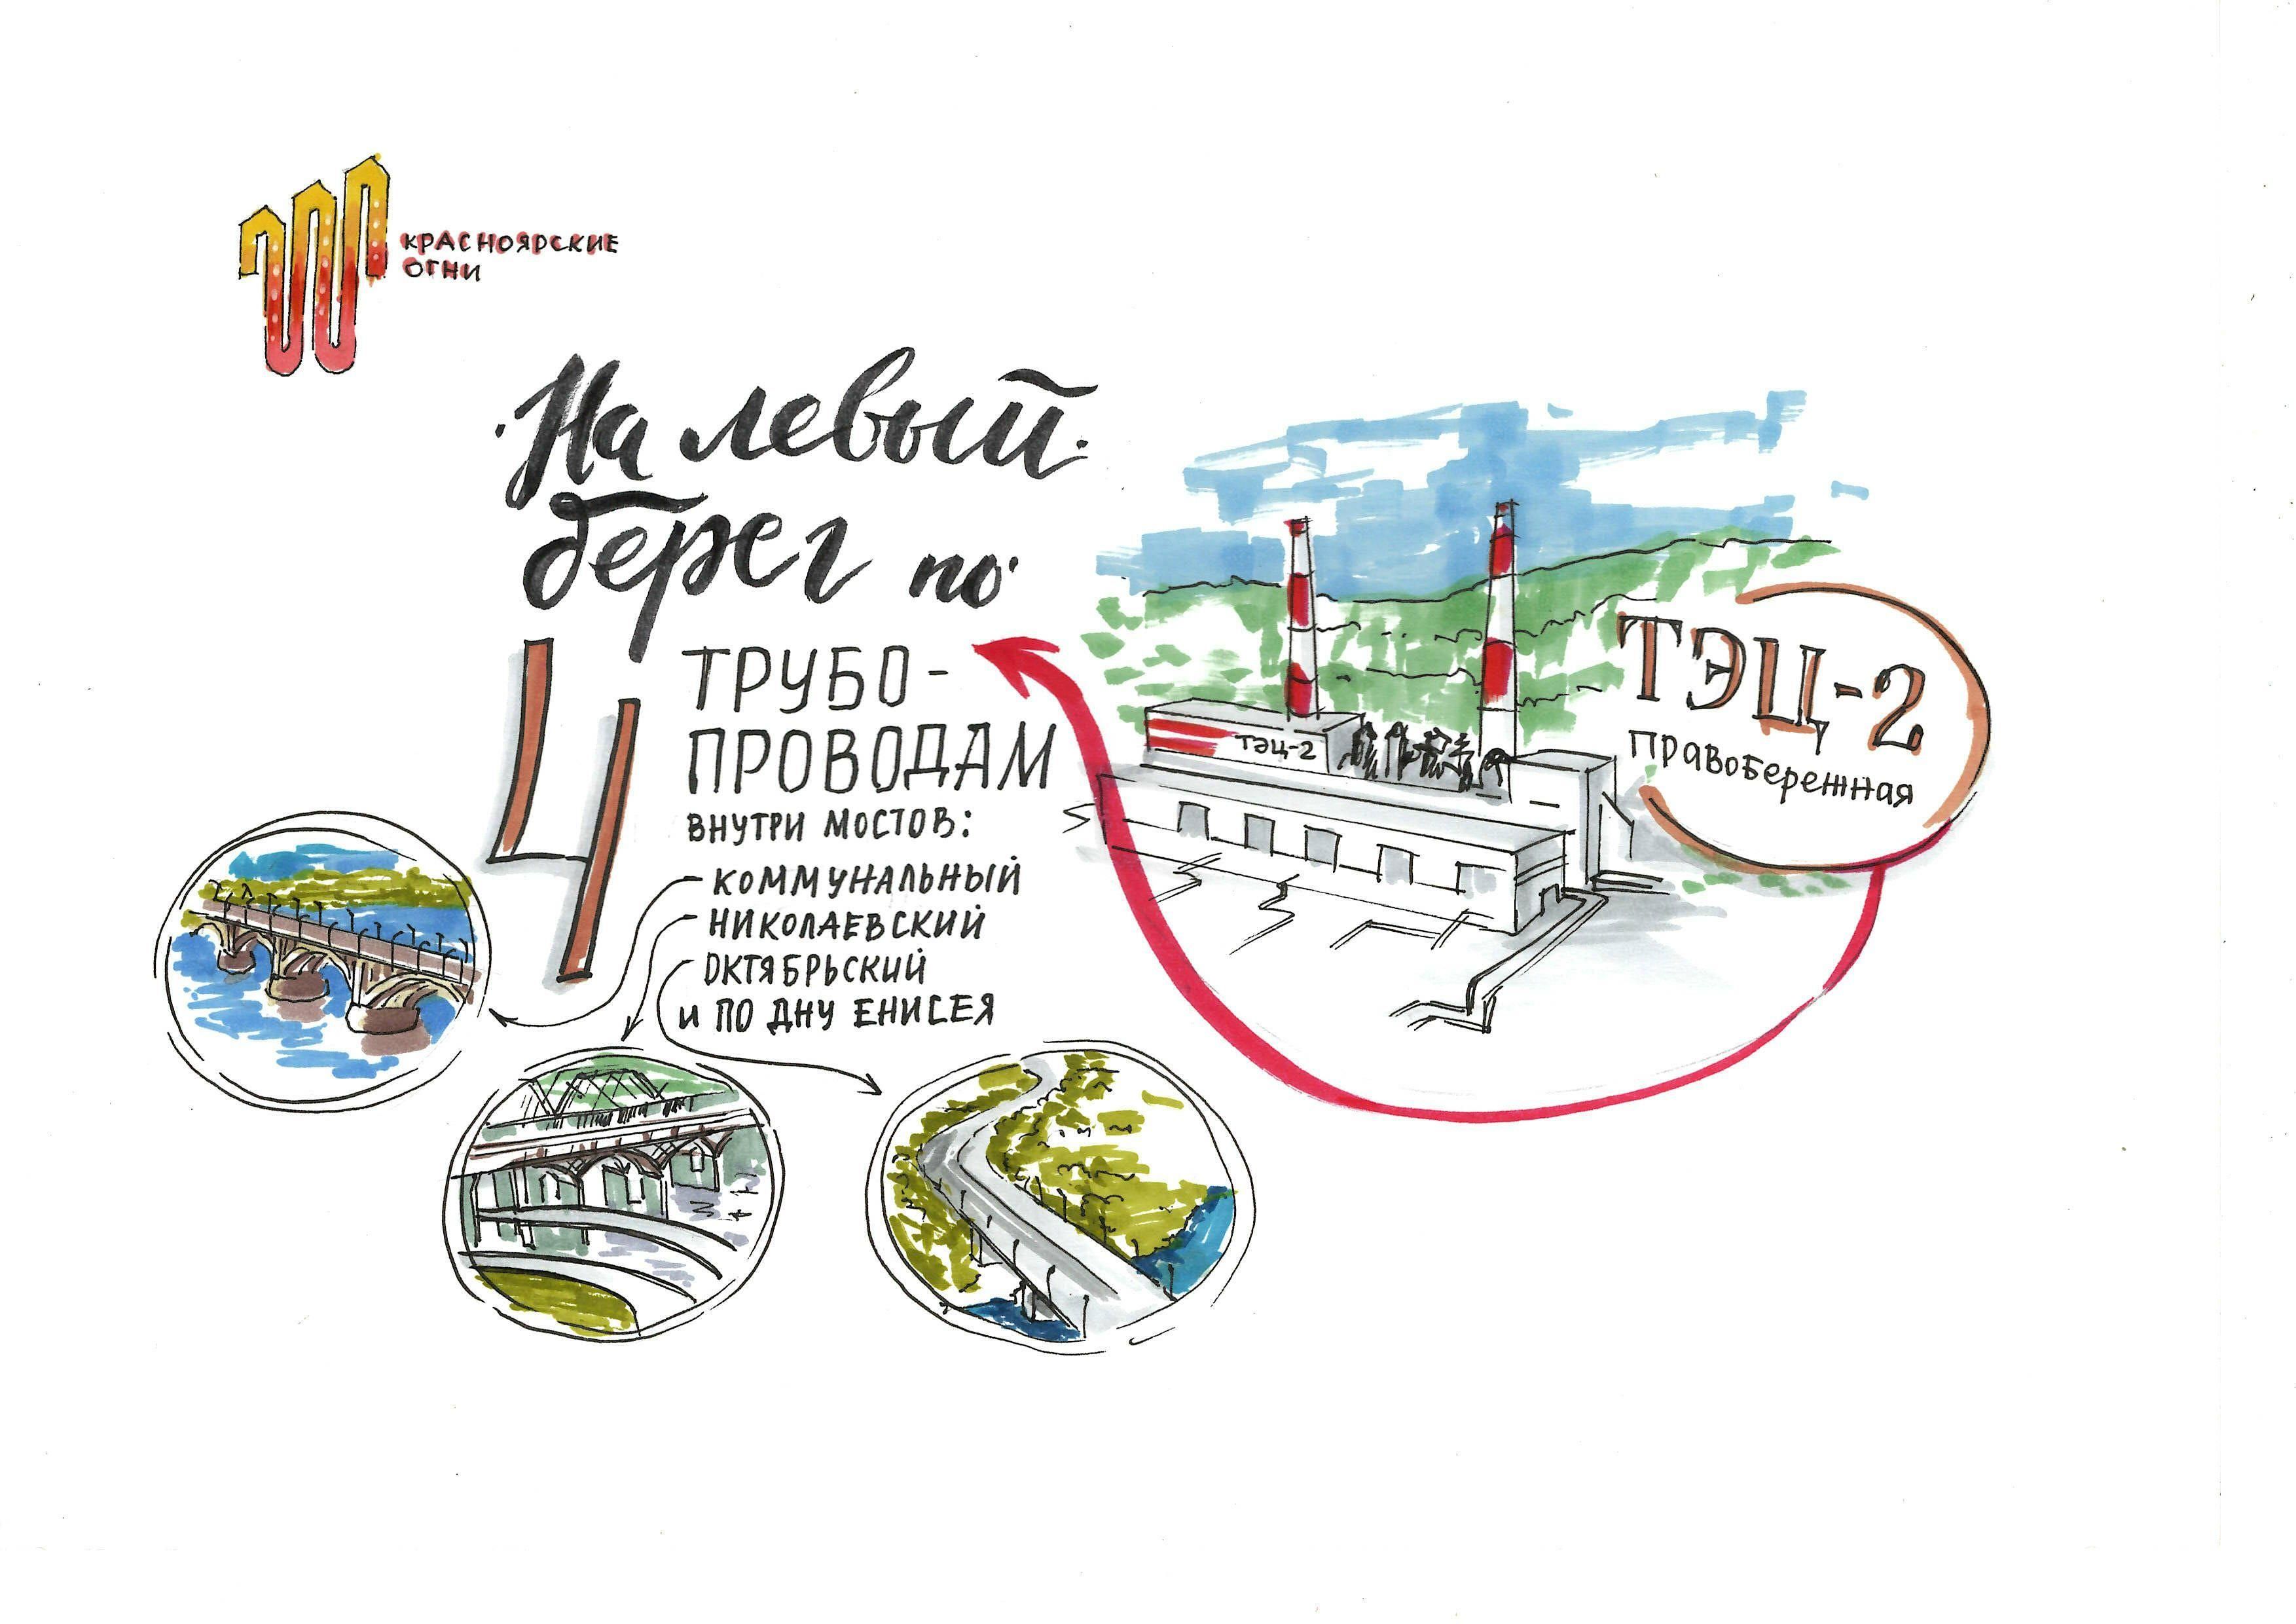 КРАСНОЯРСКИЕ
ОГНИ
На левый
берег по
4 ТРУБО-
ПРОВОДАМ
ВНУТРИ МОСТОВ:
КОММУНАЛЬНЫЙ
НИКОЛАЕВСКИЙ
ОКТЯБРЬСКИЙ
И ПО ДНУ ЕНИСЕЯ
ТЭЦ-2
ТЭЦ-2
правобережная